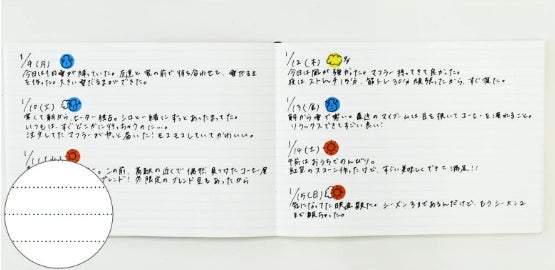 1/9(月)
今日は1日雪が降っていた。友達と家の前で待ち合わせし、雪だるま
を作った。大きい雪だるまができた。
1/10(火)
寒くて朝から、ヒーター独占。シロと一緒にずっとあたまってた。
いつもは、すぐどこかに行っちゃうのに…。
注文してたマフラーがやっと届いた!モフモフしていてかわいい。
1/11(水)
の前、
の近くで偶然見つけたコーヒー屋
ブレンド! 限定のブレンド豆もあったから
1/12(木)
今日は風が強かった。マフラー持ってきて良かった。
夜はストレッチ15分、筋トレ30分頑張ったから、すぐ寝た。
1/13(金)
朝から雪で寒い。最近のマイブームは豆を挽いてコーヒーを淹れること。
リラックスできてすごい良い!
1/14(土)
午前はおうちでのんびり。
紅茶のスコーン作ったけど、すごい美味しくできて満足!!
1/15(日)
気になってた映画観た。シーズン3まであるんだけど、もうシーズン2
まで観ちゃった。